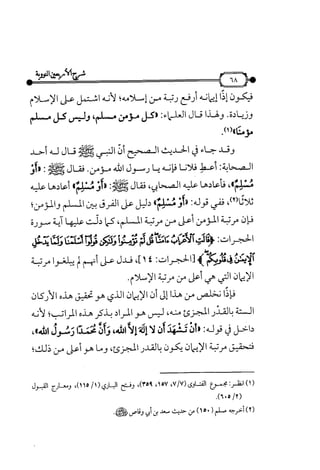 شرح الأربعين النووية
٦٨
فيكون إذًا إيمانه أرفع رتبة من إسلامه؛ لأنه اشتمل على الإسلام
وزيادة. ولهذا قال العلماء: «كل مؤمن مسلم، وليس كل مسلم
مؤمنًا»(١).
وقد جاء في الحديث الصحيح أنّ النبي ﷺ قال له أحد
الصحابة: أعطِ فلانًا فإنه يا رسول الله مؤمن. فقال ﷺ: «أَوْ
مُسْلِمٌ»، فأعادها عليه الصحابي، فقال: «أَوْ مُسْلِمٌ» أعادها عليه
ثلاثًا(٢)، ففي قوله: «أَوْ مُسْلِمٌ» دليل على الفرق بين المسلم والمؤمن؛
فإن مرتبة المؤمن أعلى من مرتبة المسلم، كما دلّت عليها آية سورة
الحجرات: ﴿قَالَتِ الْأَعْرَابُ آمَنَّا قُل لَّمْ تُؤْمِنُوا وَلَٰكِن قُولُوا أَسْلَمْنَا وَلَمَّا يَدْخُلِ
الْإِيمَٰنُ فِي قُلُوبِكُمْ﴾ [الحجرات: ١٤]، فدل على أنهم لم يبلغوا مرتبة
الإيمان التي هي أعلى من مرتبة الإسلام.
فإذًا نخلص من هذا إلى أن الإيمان الذي هو تحقيق هذه الأركان
الستة بالقدْر المجزئ منه، ليس هو المراد بذكر هذه المراتب؛ لأنه
داخل في قوله: «أَنْ تَشْهَدَ أَن لا إِلَهَ إِلاَّ الله، وَأَنَّ مُحَمَّدًا رَسُولُ الله»،
فتحقيق مرتبة الإيمان يكون بالقدر المجزئ، وما هو أعلى من ذلك؛
(١) انظر: مجموع الفتاوى (٧/٧، ١٥٧، ٣٥٩)، وفتح الباري (١/ ١١٥)، ومعارج القبول
(٢/ ٦٠٥).
(٢) أخرجه مسلم (١٥٠) من حديث سعد بن أبي وقاص ﵁.